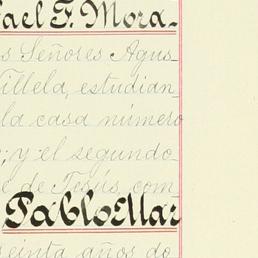 ael F. Mora-
s Señores Agus-
Villela, estudian-
la casa número
; y el segundo
e de Jesús, com-
Pablo Mar
reinta años do-